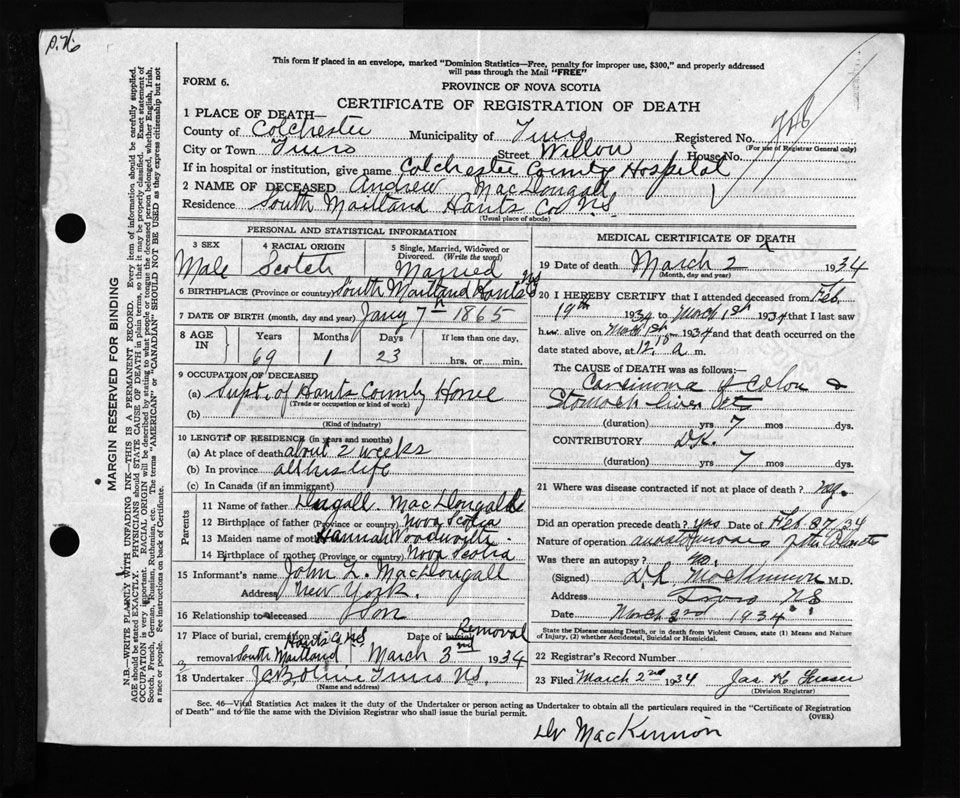 P.N6
This form if placed in an envelope, marked "Dominion Statistics—Free, penalty for improper use, $300," and properly addressed
will pass through the Mail "FREE"
FORM 6.
PROVINCE OF NOVA SCOTIA
CERTIFICATE OF REGISTRATION OF DEATH
1 PLACE OF DEATH—
County of Colchester Municipality of Truro Registered No. 746
(For use of Registrar General only)
City or Town Truro Street Willow House No.
If in hospital or institution, give name Colchester County Hospital
2 NAME OF DECEASED Andrew MacDougall
Residence South Maitland Hants Co. N.S.
(Usual place of abode)
PERSONAL AND STATISTICAL INFORMATION
3 SEX 4 RACIAL ORIGIN 5 Single, Married, Widowed or Divorced. (Write the word)
Male Scotch Married
6 BIRTHPLACE (Province or country) South Maitland Hants
7 DATE OF BIRTH (month, day and year) Jany 7th 1865
8 AGE IN Years Months Days If less than one day,
69 1 23 hrs. or min.
9 OCCUPATION OF DECEASED
(a) Supt. of Hants County Home
(Trade or occupation or kind of work)
(b)
(Kind of industry)
10 LENGTH OF RESIDENCE (in years and months)
(a) At place of death about 2 weeks
(b) In province all his life
(c) In Canada (if an immigrant)
Parents
11 Name of father Dugall MacDougall
12 Birthplace of father (Province or country) Nova Scotia
13 Maiden name of mother Hannah Woodworth
14 Birthplace of mother (Province or country) Nova Scotia
15 Informant's name John L. MacDougall
Address New York.
16 Relationship to deceased Son
17 Place of burial, cremation or Hants Co NS Date of burial Removal
removal South Maitland March 3rd 1934
18 Undertaker Truro N.S.
(Name and address)
MEDICAL CERTIFICATE OF DEATH
19 Date of death March 2 1934
(Month, day and year)
20 I HEREBY CERTIFY that I attended deceased from Feb.
19th 1934 to March 1st 1934 that I last saw
h alive on March 1st 1934 and that death occurred on the
date stated above, at 12.10 a m.
The CAUSE OF DEATH was as follows:—
Carcinoma of Colon &
Stomach liver etc
(duration) yrs 7 mos dys.
CONTRIBUTORY D.K.
(duration) yrs 7 mos. dys.
21 Where was disease contracted if not at place of death?
Did an operation precede death? yes Date of Feb 27/34
Nature of operation
Was there an autopsy? no.
(Signed) MacKinnon M.D.
Address Truro NS
Date March 2nd 1934
State the Disease causing Death, or in death from Violent Causes, state (1) Means and Nature
of Injury, (2) whether Accidental, Suicidal or Homicidal.
22 Registrar's Record Number
23 Filed March 2nd 1934 Jas H Fraser
(Division Registrar)
Sec. 46—Vital Statistics Act makes it the duty of the Undertaker or person acting as Undertaker to obtain all the particulars required in the "Certificate of Registration
of Death" and to file the same with the Division Registrar who shall issue the burial permit.
(OVER)
Dr MacKinnon
MARGIN RESERVED FOR BINDING
N.B.—WRITE PLAINLY WITH UNFADING INK—THIS IS A PERMANENT RECORD. Every item of information should be carefully supplied.
AGE should be stated EXACTLY. PHYSICIANS should STATE CAUSE OF DEATH in plain terms, so that it may be properly classified. Exact statement of
OCCUPATION is very important. RACIAL ORIGIN will be described by stating to what people or tongue the deceased person belonged, whether English, Irish,
Scotch, French, German, Russian, Ruthenian, etc. The terms "AMERICAN" or "CANADIAN" SHOULD NOT BE USED as they express citizenship but not
a race or people. See instructions on back of Certificate.